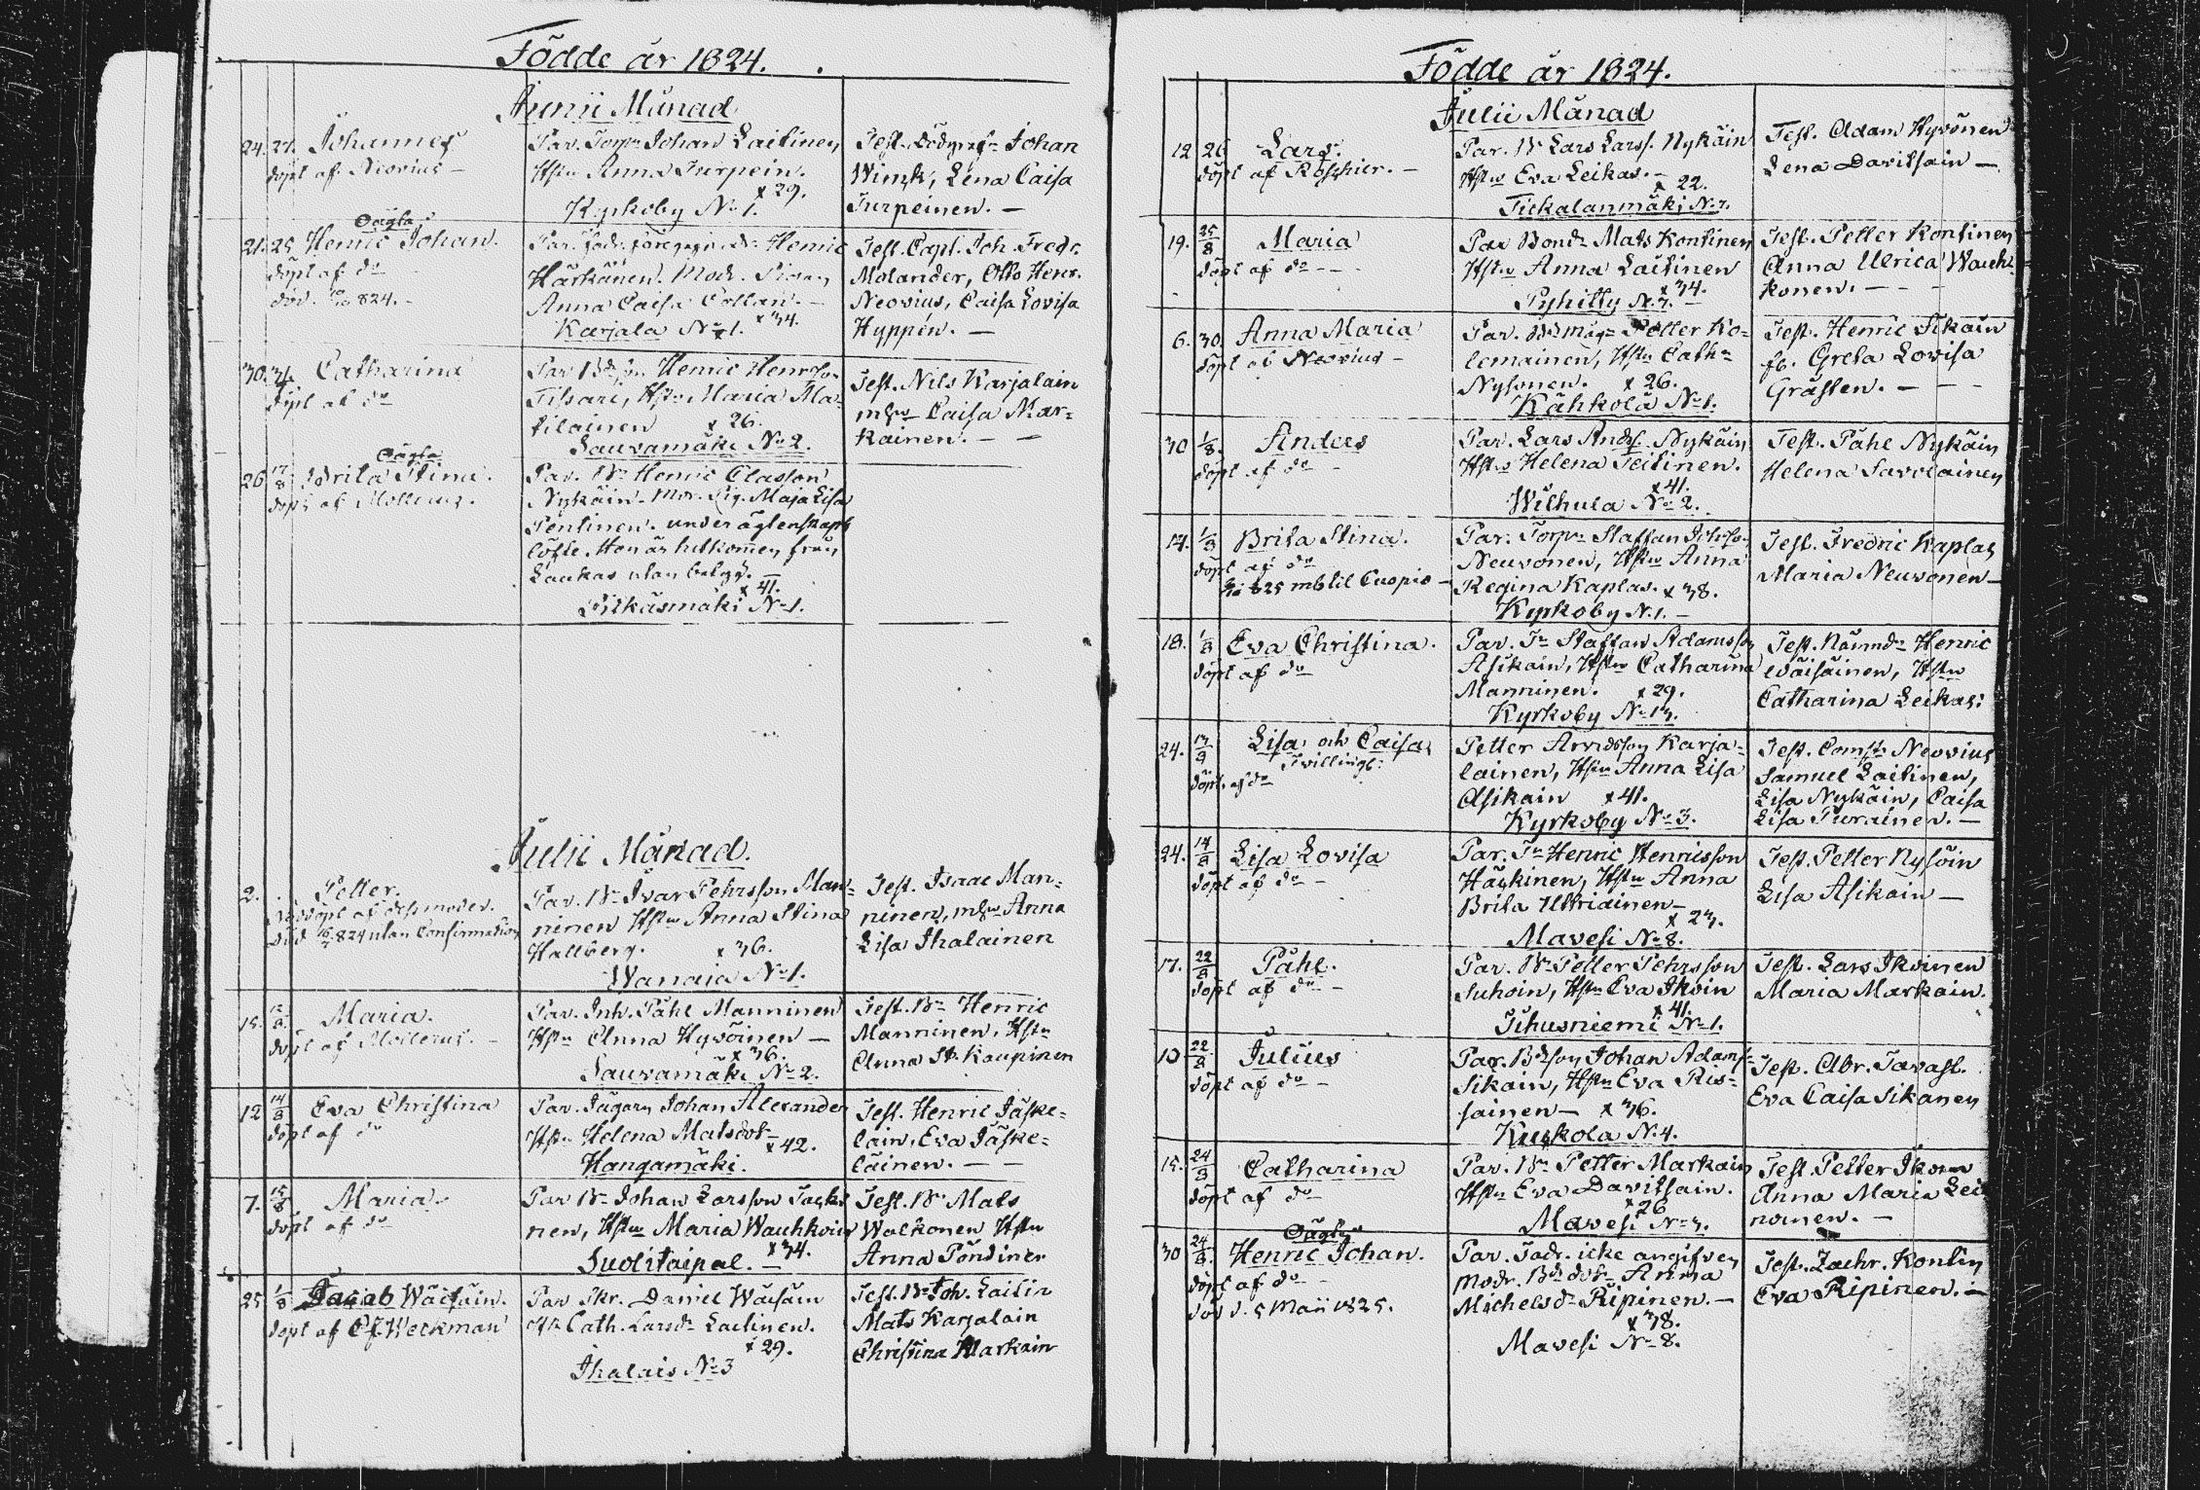 Födde år 1824.
Junii Månad
24. 27. Johannes
döpt af Neovius —
Par. Torp. Johan Laitinen
Hstu Anna Turpein.
x 29.
Kyrkoby No 1.
Test. Johan
Winck, Lena Caisa
Turpeinen. —
Oägta
21. 25. Henric Johan.
döpt af do
död. 824. —
Par. fadr. Henric
Härkänen. Modr. Pigan
Anna Caisa Collan. —
Karjala No 1. x 34.
Test. Capl. Joh. Fredr.
Molander, Otto Henr.
Neovius, Caisa Lovisa
Hyppén. —
30. 31. Catharina
döpt af do
Par Henric Henrsson
Tissari, Hstu Maria Ma-
tilainen x 26.
Sauvamäki No 2.
Test. Nils Karjalain
Caisa Mar-
kainen. — —
Oägta
26 17/8 Brita Stina.
döpt af Mollerus.
Par. Bn Henric Classon
Nykäin. Mor. Pig. Maja Lisa
Pentinen. under äktenskaps
löfte. Hon är hitkommen från
Laukas utan betyg. —
x 41.
Pitkäsmäki No 1.
Julii Månad.
2. Petter.
Nöddöpt af dess moder.
död 824 utan Confirmation
Par. Bn Ivar Pehrsson Man-
ninen Hstu Anna Stina
Hallberg. x 36.
Wanaja No 1.
Test. Isaac Man-
ninen, Anna
Lisa Ihalainen
15. Maria.
döpt af Mollerus. —
Par. Inh. Påhl Manninen
Hstu Anna Hyvöinen —
x 36.
Sauvamäki No 2.
Test. Bn Henric
Manninen, Hstu
Anna St. Kaupinen
12 14/8 Eva Christina
döpt af do
Par. Jägarn Johan Alexander
Hstu Helena Matsdotr
x 42.
Hangamäki.
Test. Henric Jäske-
lain, Eva Jäske-
läinen. — —
7. 15/8 Maria
döpt af do
Par Bn Johan Larsson
nen, Hstu Maria Wauhkoin
Suolitaipal. — x 34.
Test. Bn Mats
Walkonen Hstu
Anna Pöndinen
25 1/8 Jacob Wäisäin.
döpt af Cf. Weckman
Par Skr. Daniel Wäisäin
Hu Cath. Larsdr Laitinen.
x 29.
Ihalais No 3
Test. Bn Joh. Laitin
Mats Karjalain
Christina Markain
Födde år 1824.
Julii Månad
12 26 Lars.
döpt af Roschier. —
Par. Bn Lars Larss. Nykäin
Hstu Eva Leikas. —
x 22.
Tickalanmäki No 7.
Test. Adam Hyvönen
Lena Davitsain —
19. 25/8 Maria
döpt af do — —
Par Bond. Mats Kontinen
Hstu Anna Laitinen
x 34.
Pyhitty No 7. —
Test. Petter Kontinen
Anna Ulrica Wauh-
konen. — —
6. 30. Anna Maria
döpt af Neovius —
Par. Petter Ko-
lemainen, Hstu Cath-
Nysonen. x 26.
Kähkölä No 1.
Test. Henric Sikain
fr. Greta Lovisa
Gråsten. — — —
30 1/8. Anders
döpt af do —
Par. Lars Andrs. Nykäin
Hstu Helena Teitinen.
x 41.
Wilhula No 2.
Test. Påhl Nykäin
Helena Savolainen
14. 1/8 Brita Stina.
döpt af do
825 mb til Cuopio —
Par. Torpr Staffan Johsson
Neuvonen, Hstu Anna
Regina Kaplas. x 38.
Kyrkoby N. 1. —
Test. Fredric Kaplas
Maria Neuvonen —
18. 1/8 Eva Christina.
döpt af do
Par. Tr Staffan Adamsson
Asikain, Hstu Catharina
Manninen. x 29.
Kyrkoby No 13.
Test. Nämndn Henric
Wäisäinen, Hstu
Catharina Leikas.
24. Lisa och Caisa
Tvillingr
döpt. af do
Petter Arvidsson Karja-
lainen, Hstu Anna Lisa
Asikain x 41.
Kyrkoby No 3.
Test. Neovius
Samuel Laitinen,
Lisa Nykäin, Caisa
Lisa Purainen. —
24. 14/8 Lisa Lovisa
döpt af do —
Par. Tr Henric Henricsson
Häckinen, Hstu Anna
Brita Uttriainen —
x 23.
Mavesi No 8.
Test. Petter Nysöin
Lisa Asikain —
17. 22/8 Påhl.
döpt af do —
Par. Bn Petter Pehrsson
Suhoin, Hstu Eva Ikoin
x 41.
Jihusniemi No 1.
Test. Lars Ikoinen
Maria Markain.
10 22/8 Julius
döpt af do —
Par. Bdson Johan Adams-
Sikain, Hstu Eva Ris-
sainen — x 36.
Kuckola N. 4.
Test. Abr. Tavast.
Eva Caisa Sikanen
15. 24/8 Catharina
döpt af do
Par. Bn Petter Markain
Hstu Eva Davitsain.
x 26
Mavesi No 3.
Test. Petter Ikonen
Anna Maria Lei-
nonen. —
Oägta
30 24/8. Henric Johan.
döpt af do —
död d. 5 Maii 1825.
Par. Fadr. icke angifven
Modr. Bd. dotr Anna
Michelsdr Ripinen. —
x 38.
Mavesi No 8.
Test. Zachr. Kontin
Eva Ripinen. —